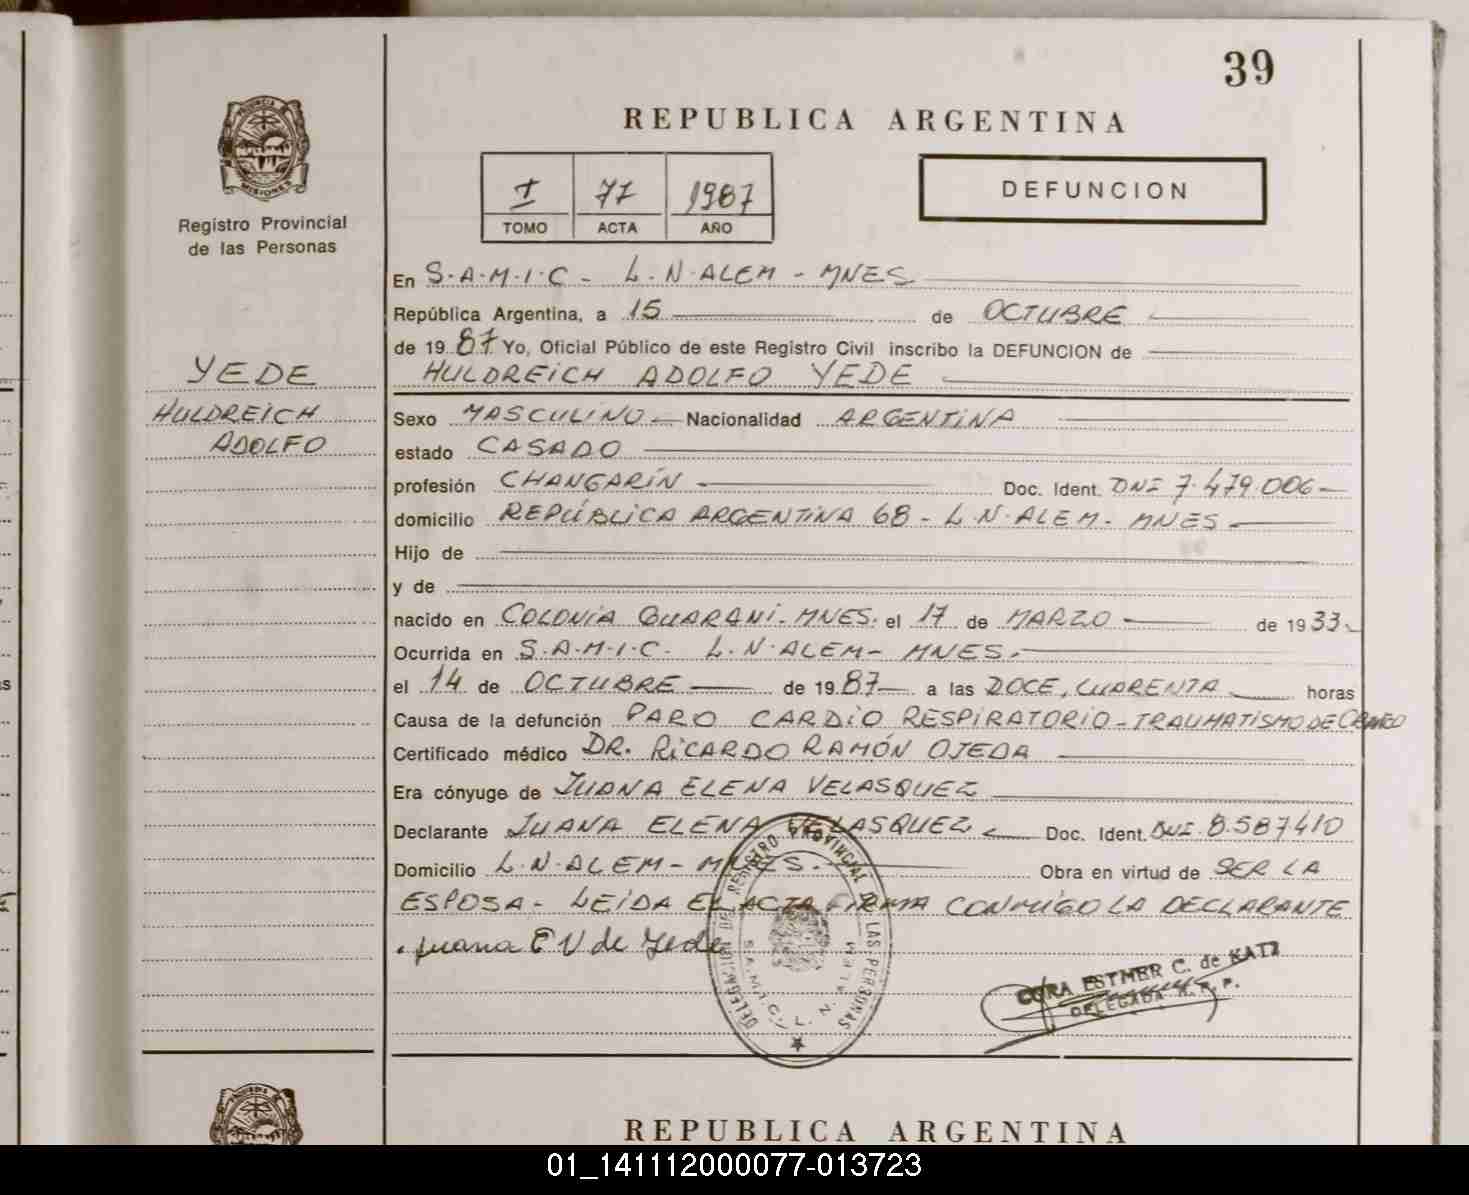 39
REPUBLICA ARGENTINA
PROVINCIA DE
MISIONES
Registro Provincial
de las Personas
I 77 1987
TOMO ACTA AÑO
DEFUNCION
En S.A.M.I.C - L.N.ALEM - MNES
República Argentina, a 15 de OCTUBRE
de 1987 Yo, Oficial Público de este Registro Civil inscribo la DEFUNCION de
HULDREICH ADOLFO YEDE
YEDE
HULDREICH
ADOLFO
Sexo MASCULINO - Nacionalidad ARGENTINA
estado CASADO
profesión CHANGARÍN Doc. Ident. DNI 7.479.006
domicilio REPÚBLICA ARGENTINA 68 - L.N.ALEM. MNES
Hijo de
y de
nacido en COLONIA GUARANI - MNES. el 17 de MARZO de 1933
Ocurrida en S.A.M.I.C. L.N.ALEM - MNES.
el 14 de OCTUBRE de 1987 a las DOCE, CUARENTA horas
Causa de la defunción PARO CARDIO RESPIRATORIO - TRAUMATISMO DE CRANEO
Certificado médico DR. RICARDO RAMÓN OJEDA
Era cónyuge de JUANA ELENA VELASQUEZ
Declarante JUANA ELENA VELASQUEZ Doc. Ident. DNI. 8.587410
Domicilio L.N.ALEM - MNES. Obra en virtud de SER LA
ESPOSA - LEIDA EL ACTA FIRMA CONMIGO LA DECLARANTE
Juana E V de Yede
DELEGACION DEL REGISTRO PROVINCIAL DE LAS PERSONAS
S.A.M.I.C. L. N. ALEM
CORA ESTHER C. de KATZ
DELEGADA R. P. P.
REPUBLICA ARGENTINA
01_141112000077-013723